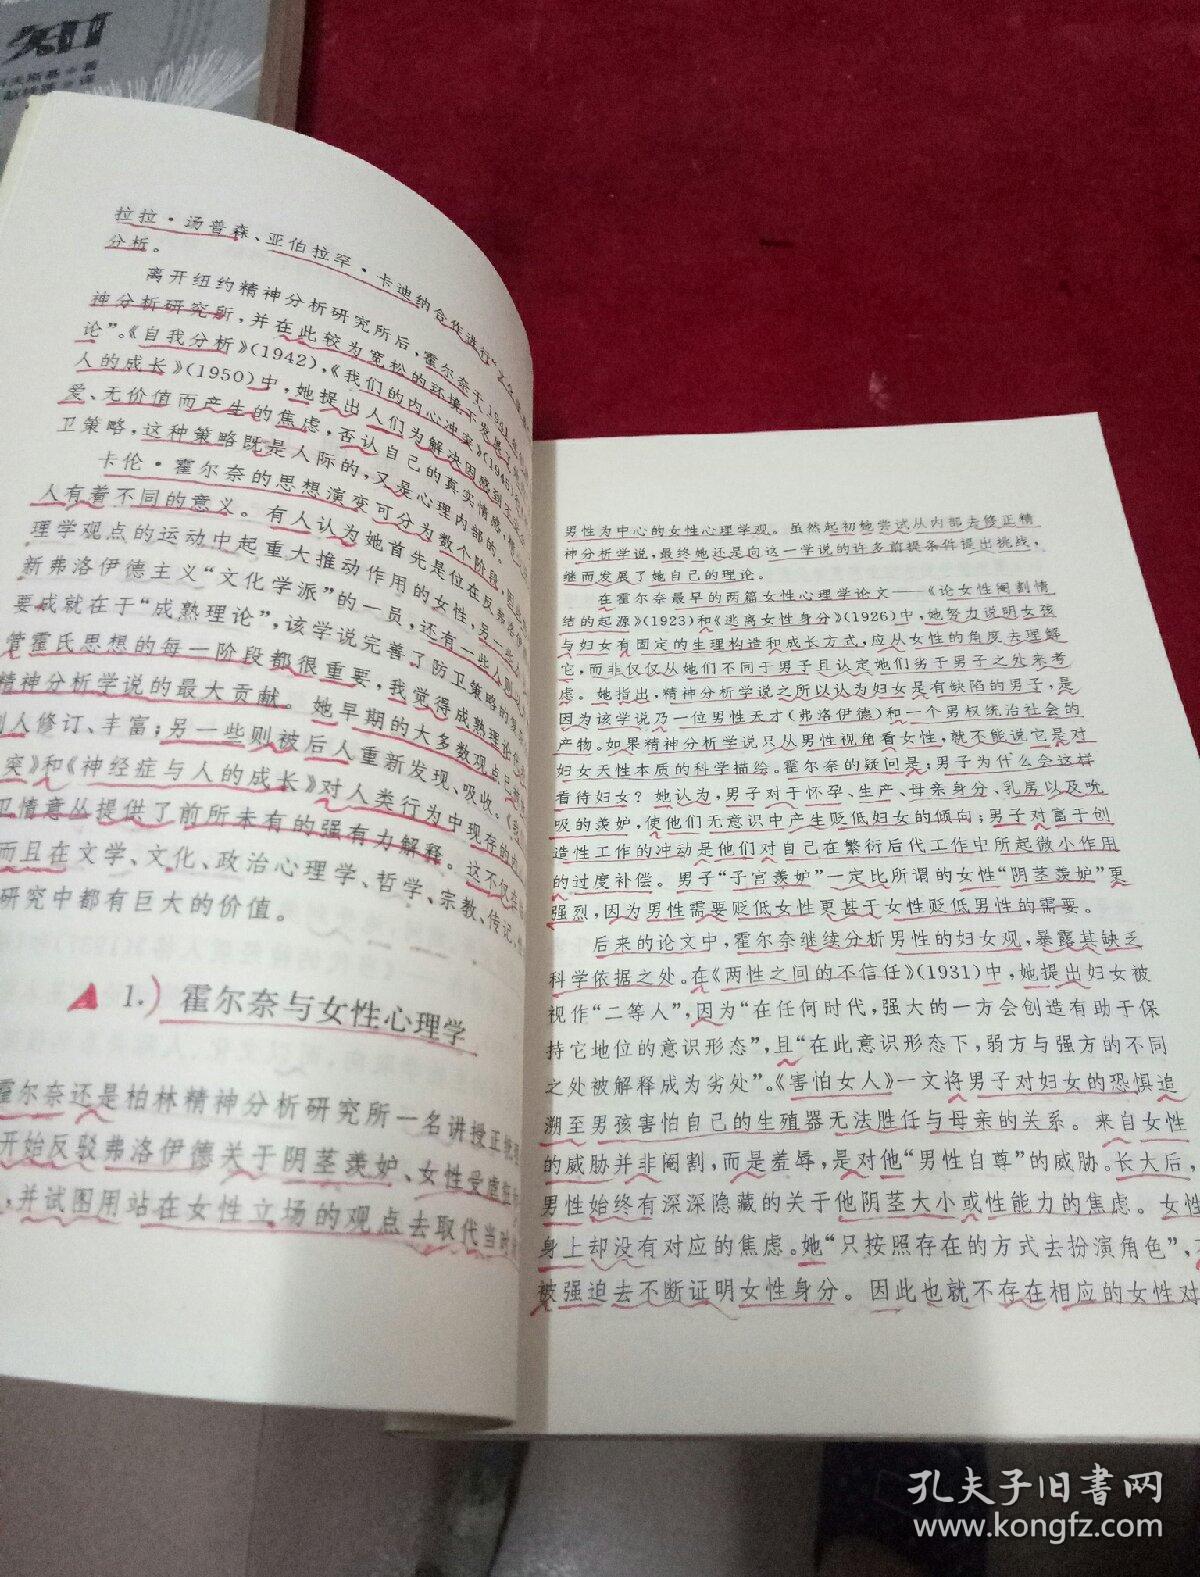 知
拉拉·汤普森、亚伯拉罕·卡迪纳合作进行"文化
分析。
离开纽约精神分析研究所后,霍尔奈于1941
神分析研究所,并在此较为宽松的环境下发展了
论"。《自我分析》(1942),《我们的内心冲突》(1945)
人的成长》(1950)中,她提出人们为解决因感到
爱、无价值而产生的焦虑,否认自己的真实情感,
卫策略,这种策略既是人际的,又是心理内部的。
卡伦·霍尔奈的思想演变可分为数个阶段,
人有着不同的意义。有人认为她首先是位在反
理学观点的运动中起重大推动作用的女性,另一些人
新弗洛伊德主义"文化学派"的一员,还有一些人则
要成就在于"成熟理论",该学说完善了防卫策略的
管霍氏思想的每一阶段都很重要,我觉得成熟理论
精神分析学说的最大贡献。她早期的大多数观点已
别人修订、丰富;另一些则被后人重新发现、吸收。
突》和《神经症与人的成长》对人类行为中现存的
卫情意丛提供了前所未有的强有力解释。这不仅在
而且在文学、文化、政治心理学、哲学、宗教、传记、
研究中都有巨大的价值。
1.) 霍尔奈与女性心理学
霍尔奈还是柏林精神分析研究所一名讲授正统
开始反驳弗洛伊德关于阴茎羡妒、女性受虐
,并试图用站在女性立场的观点去取代当时
男性为中心的女性心理学观。虽然起初她尝试从内部去修正精
神分析学说,最终她还是向这一学说的许多前提条件提出挑战,
继而发展了她自己的理论。
在霍尔奈最早的两篇女性心理学论文——《论女性阉割情
结的起源》(1923)和《逃离女性身分》(1926)中,她努力说明女孩
与妇女有固定的生理构造和成长方式,应从女性的角度去理解
它,而非仅仅从她们不同于男子且认定她们劣于男子之处来考
虑。她指出,精神分析学说之所以认为妇女是有缺陷的男子,是
因为该学说乃一位男性天才(弗洛伊德)和一个男权统治社会的
产物。如果精神分析学说只从男性视角看女性,就不能说它是对
妇女天性本质的科学描绘。霍尔奈的疑问是:男子为什么会这样
看待妇女?她认为,男子对于怀孕、生产、母亲身分、乳房以及吮
吸的羡妒,使他们无意识中产生贬低妇女的倾向;男子对富于创
造性工作的冲动是他们对自己在繁衍后代工作中所起微小作用
的过度补偿。男子"子宫羡妒"一定比所谓的女性"阴茎羡妒"更
强烈,因为男性需要贬低女性更甚于女性贬低男性的需要。
后来的论文中,霍尔奈继续分析男性的妇女观,暴露其缺乏
科学依据之处。在《两性之间的不信任》(1931)中,她提出妇女被
视作"二等人",因为"在任何时代,强大的一方会创造有助于保
持它地位的意识形态",且"在此意识形态下,弱方与强方的不同
之处被解释成为劣处"。《害怕女人》一文将男子对妇女的恐惧追
溯至男孩害怕自己的生殖器无法胜任与母亲的关系。来自女性
的威胁并非阉割,而是羞辱,是对他"男性自尊"的威胁。长大后,
男性始终有深深隐藏的关于他阴茎大小或性能力的焦虑。女性
身上却没有对应的焦虑。她"只按照存在的方式去扮演角色"、
被强迫去不断证明女性身分。因此也就不存在相应的女性对
孔夫子旧书网
www.kongfz.com